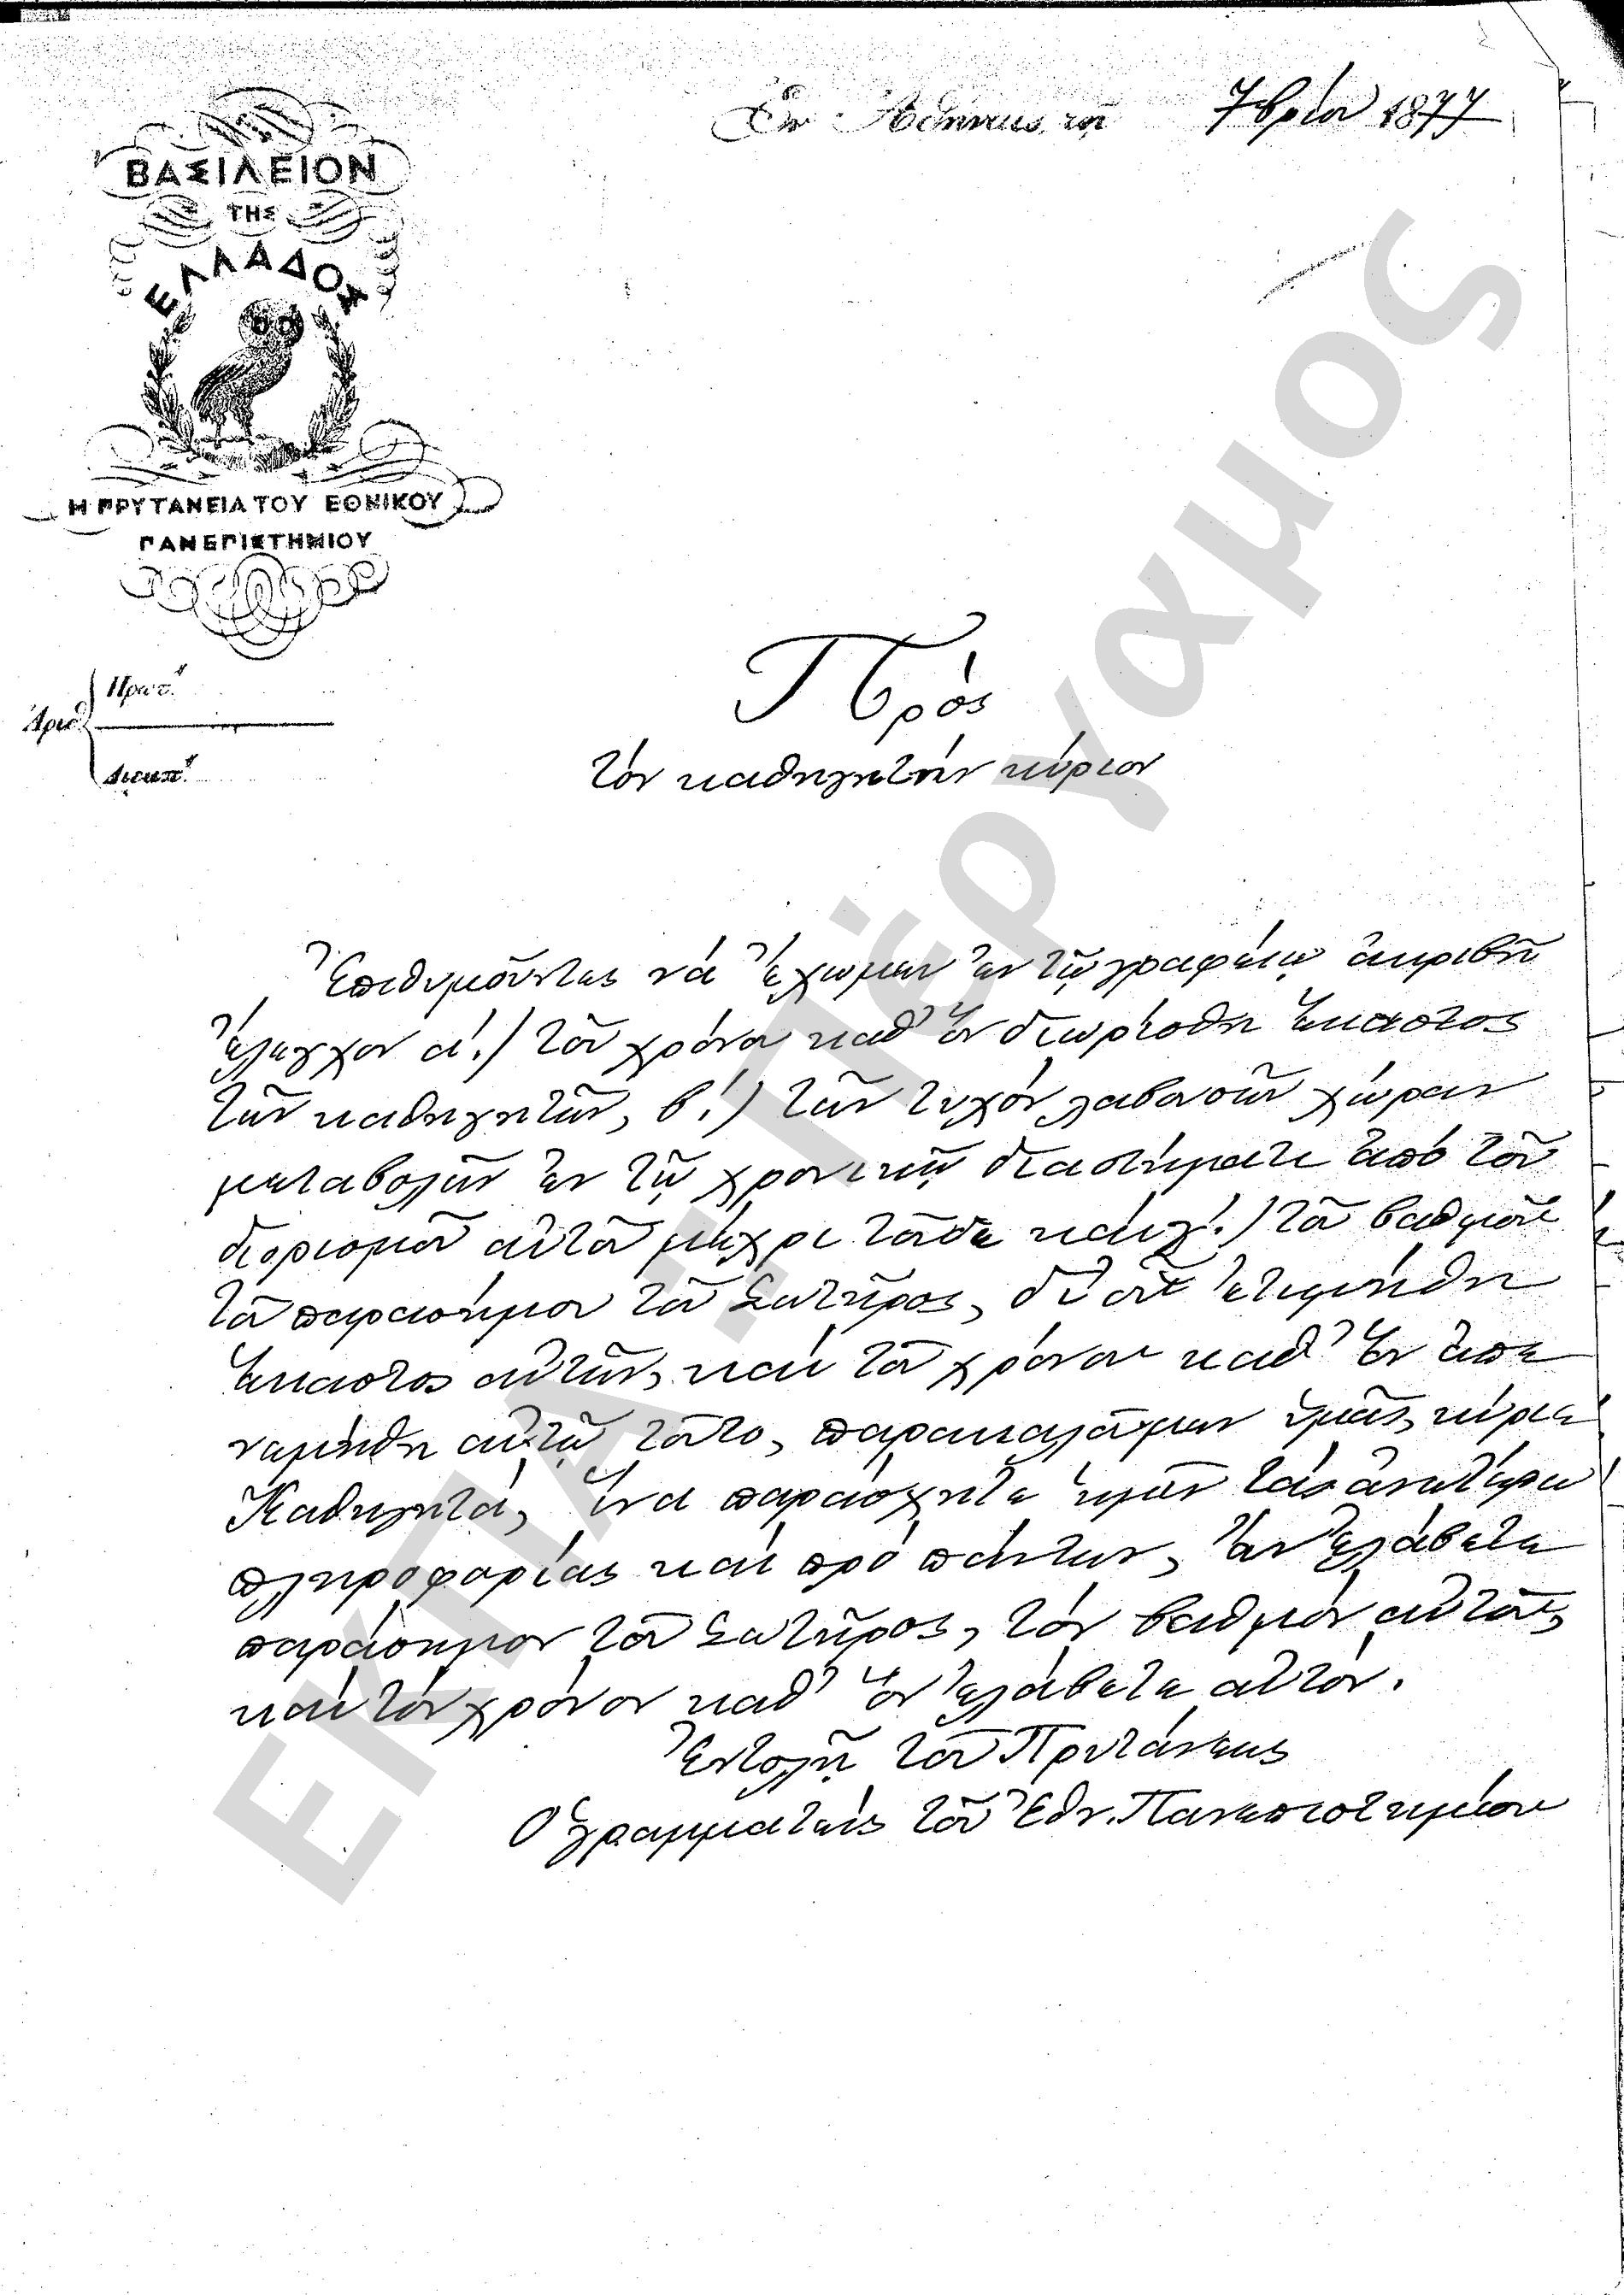 Ἐν Ἀθήναις τῇ 7βρίου 1877
ΒΑΣΙΛΕΙΟΝ
ΤΗΣ
ΕΛΛΑΔΟΣ
Η ΠΡΥΤΑΝΕΙΑ ΤΟΥ ΕΘΝΙΚΟΥ
ΠΑΝΕΠΙΣΤΗΜΙΟΥ
Πρωτ.
Ἀριθ.
Διεκπ.
Πρὸς
τὸν καθηγητὴν κύριον
Ἐπιθυμοῦντες νὰ ἔχωμεν ἐν τῷ γραφείῳ ἀκριβῆ
ἔλεγχον α΄.) τοῦ χρόνου καθ' ὃν διωρίσθη ἕκαστος
τῶν καθηγητῶν, β΄.) τῶν τυχὸν λαβουσῶν χώραν
μεταβολῶν ἐν τῷ χρονικῷ διαστήματι ἀπὸ τοῦ
διορισμοῦ αὐτοῦ μέχρι τοῦδε καὶ γ΄.) τοῦ βαθμοῦ
τοῦ παρασήμου τοῦ Σωτῆρος, δι' οὗ ἐτιμήθη
ἕκαστος αὐτῶν, καὶ τοῦ χρόνου καθ' ὃν ἀπε
νεμήθη αὐτῷ τοῦτο, παρακαλοῦμεν ὑμᾶς, κύριε
Καθηγητά, ἵνα παράσχητε ἡμῖν τὰς ἀνωτέρω
πληροφορίας καὶ πρὸ πάντων, ἂν ἐλάβετε
παράσημον τοῦ Σωτῆρος, τὸν βαθμὸν αὐτοῦ,
καὶ τὸν χρόνον καθ' ὃν ἐλάβετε αὐτόν.
Ἐντολῇ τοῦ Πρυτάνεως
Ὁ γραμματεὺς τοῦ Ἐθν. Πανεπιστημίου
ΕΚΠΑ-Πέργαμος